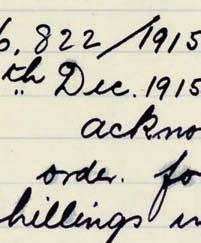 6. 822/1915
th Dec. 1915
ackno
order. fo
hillings in